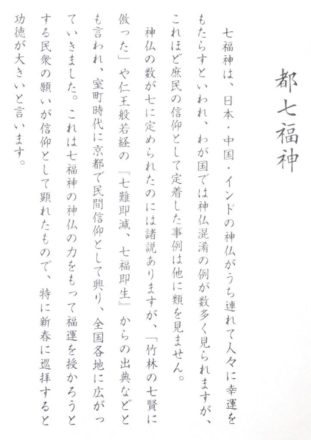 都七福神
七福神は、日本・中国・インドの神仏がうち連れて人々に幸運を
もたらすといわれ、わが国では神仏混淆の例が数多く見られますが、
これほど庶民の信仰として定着した事例は他に類を見ません。
神仏の数が七に定められたのには諸説ありますが、「竹林の七賢に
倣った」や仁王般若経の「七難即滅、七福即生」からの出典などと
も言われ、室町時代に京都で民間信仰として興り、全国各地に広がっ
ていきました。これは七福神の神仏の力をもって福運を授かろうと
する民衆の願いが信仰として顕れたもので、特に新春に巡拝すると
功徳が大きいと言います。